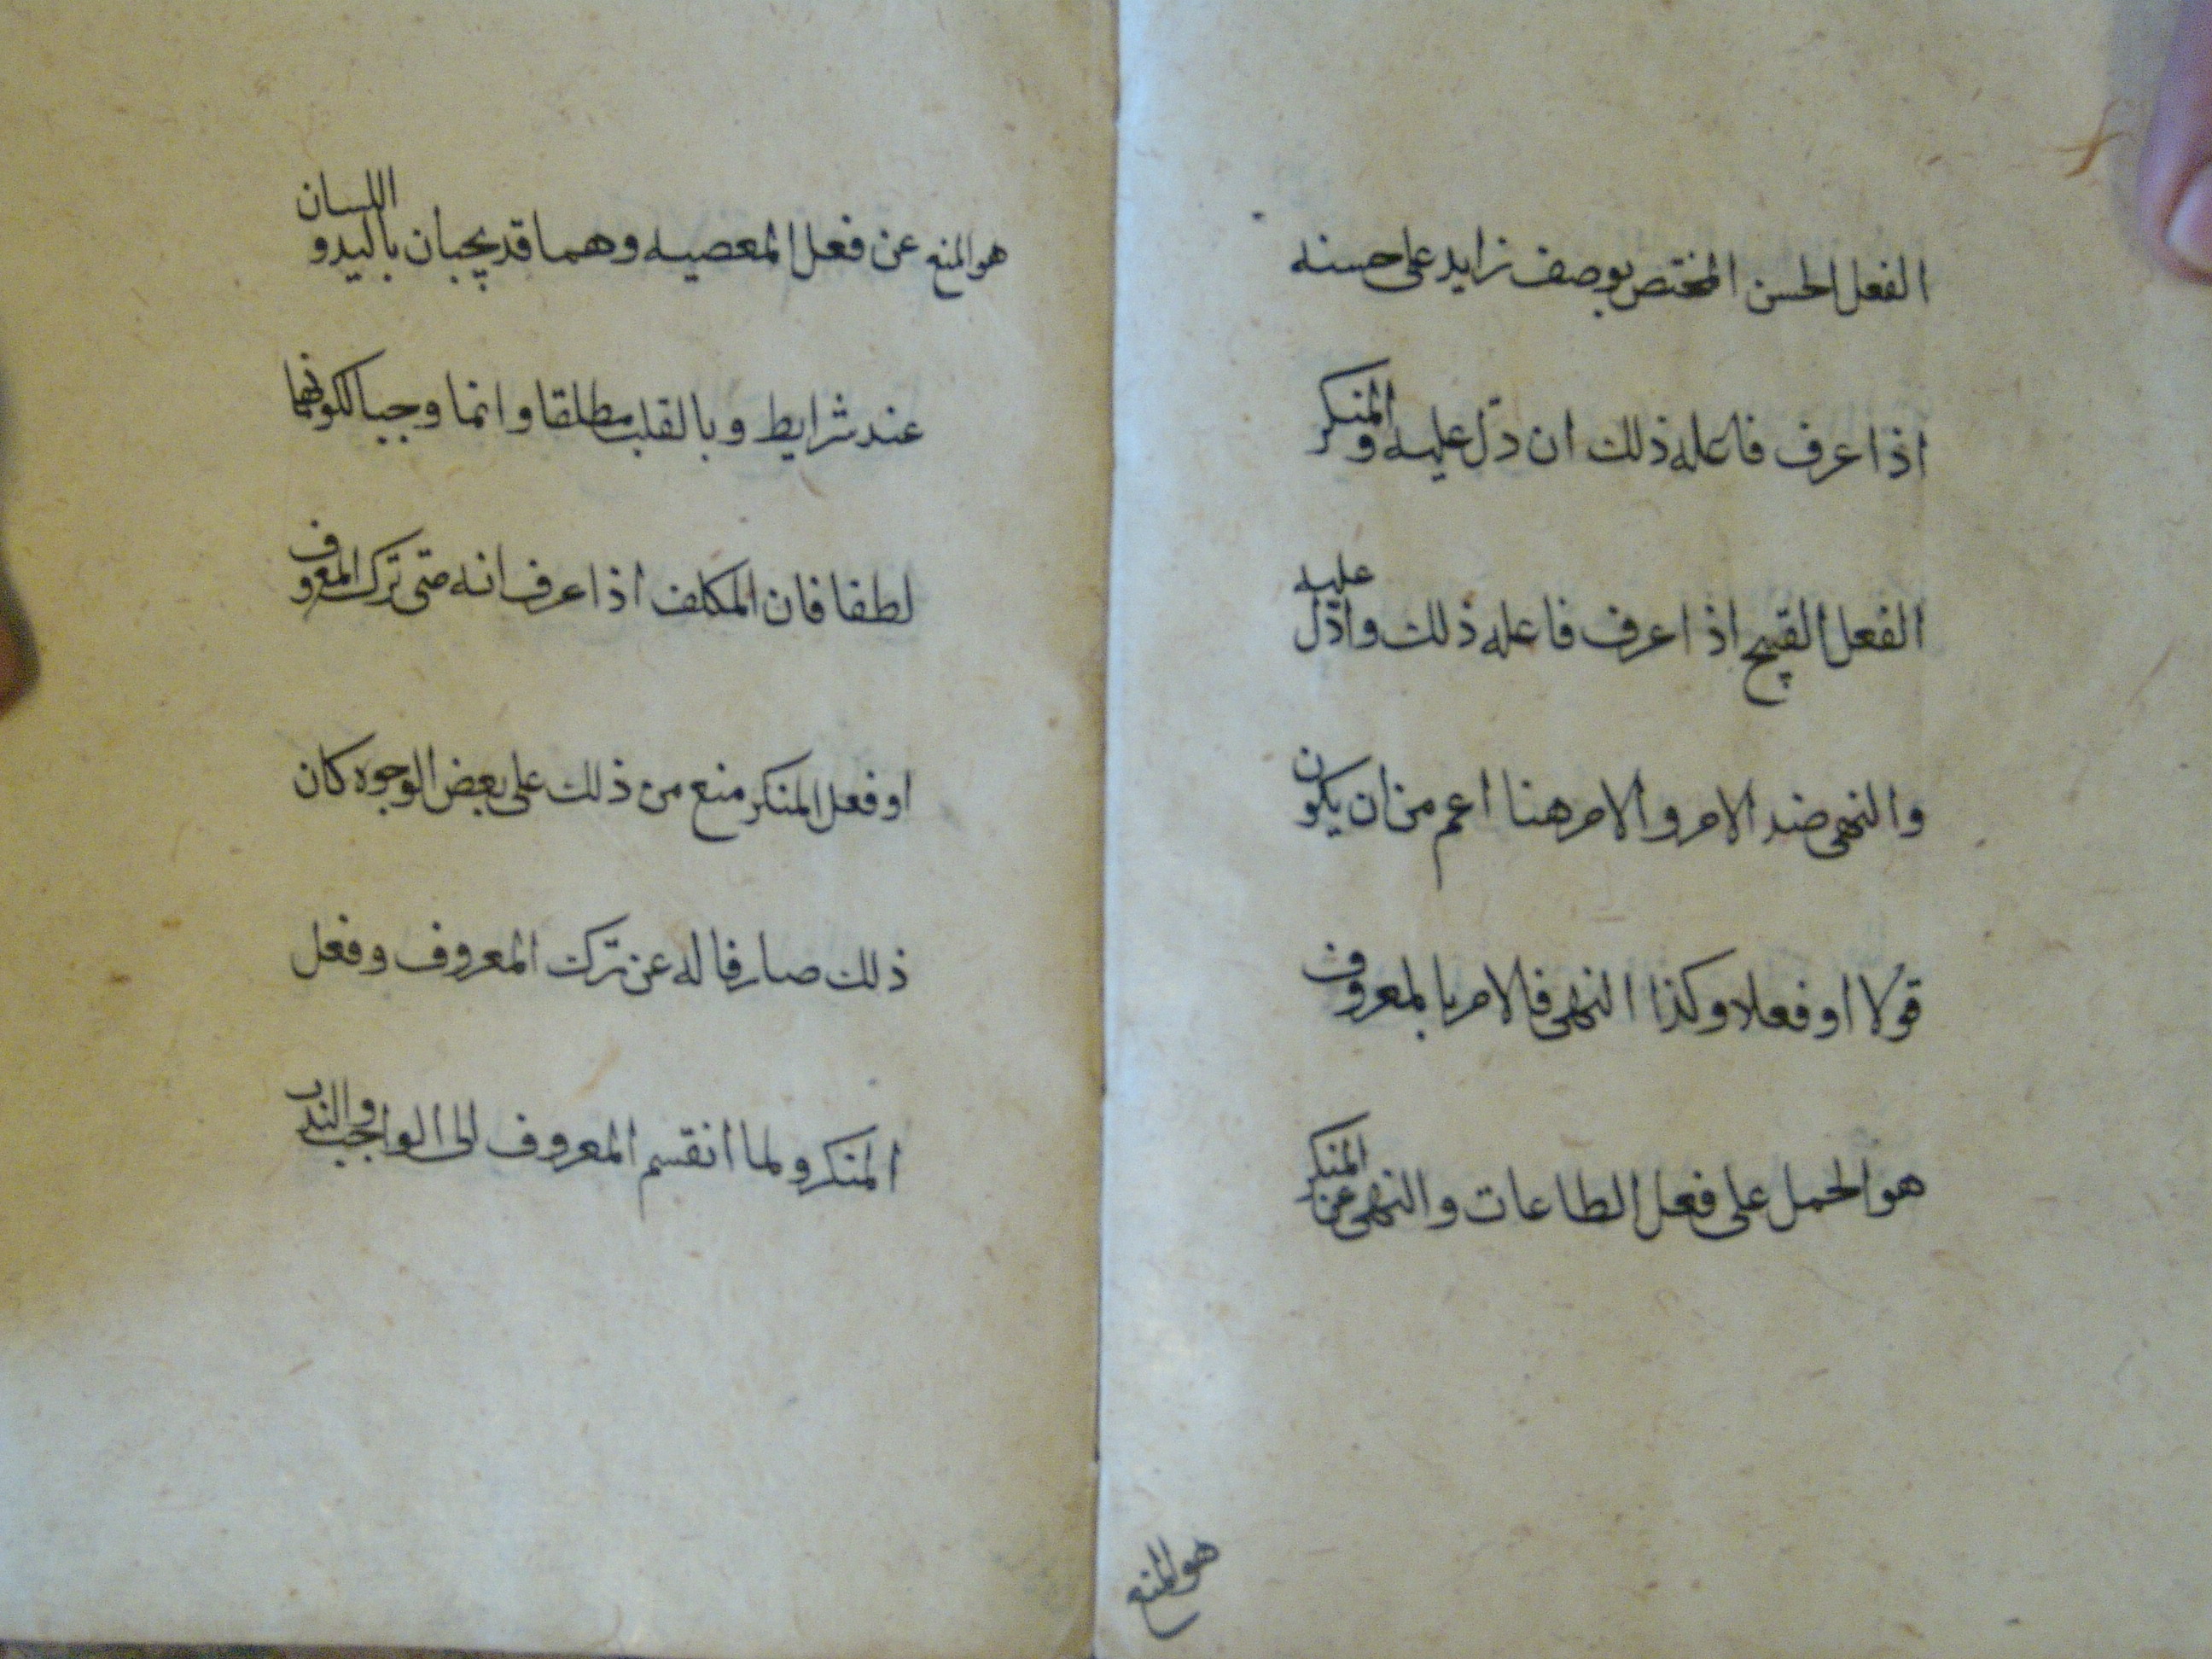 الفعل الحسن المختص بوصف زايد على حسنه
اذا عرف فاعله ذلك ان دّل عليه والمنكر
الفعل القبيح اذا عرف فاعله ذلك وادّل عليه
والنهى ضد الامر والامر هنا اعم من ان يكون
قولا او فعلا وكذا النهى فالامر بالمعروف
هو الحمل على فعل الطاعات والنهى عن المنكر
هو المنع
هو المنع عن فعل المعصيه وهما قد يجبان باليد واللسان
عند شرايط وبالقلب مطلقا وانما وجبا لكونهما
لطفا فان المكلف اذا عرف انه متى ترك المعروف
او فعل المنكر منع من ذلك على بعض الوجوه كان
ذلك صارفا له عن ترك المعروف وفعل
المنكر ولما انقسم المعروف الى الواجب والندب